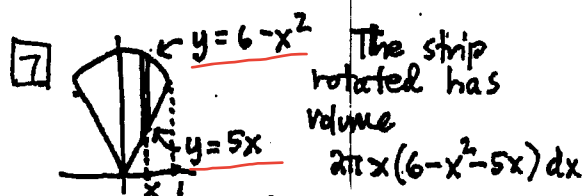 7
y = 6 - x²
y = 5x
x 1
The strip
rotated has
volume
2πx(6-x²-5x)dx